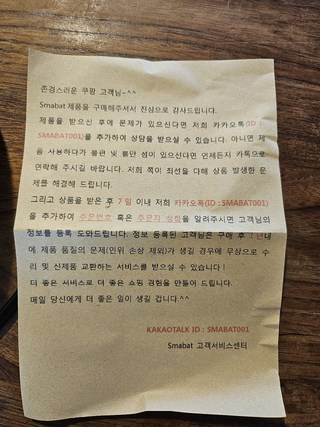 존경스러운 쿠팡 고객님~^^
Smabat 제품을 구매해주셔서 진심으로 감사드립니다.
제품을 받으신 후에 문제가 있으신다면 저희 카카오톡(ID :
SMABAT001)를 추가하여 상담을 받으실 수 있습니다. 아니면 제
품 사용하다가 불편 및 불만 섬이 있으신다면 언제든지 카톡으로
연락해 주시길 바랍니다. 저희 쪽이 최선을 다해 상품 발생한 문
제를 해결해 드립니다.
그리고 상품을 받은 후 7 일 이내 저희 카카오톡(ID : SMABAT001)
을 추가하여 주문번호 혹은 주문자 성함을 알려주시면 고객님의
정보를 등록 도와드립니다. 정보 등록된 고객님은 구매 후 1 년내
에 제품 품질의 문제(인위 손상 제외)가 생길 경우에 무상으로 수
리 및 신제품 교환하는 서비스를 받으실 수 있습니다!
더 좋은 서비스로 더 좋은 쇼핑 경험을 만들어 드립니다.
매일 당신에게 더 좋은 일이 생길 겁니다.^^
KAKAOTALK ID : SMABAT001
Smabat 고객서비스센터